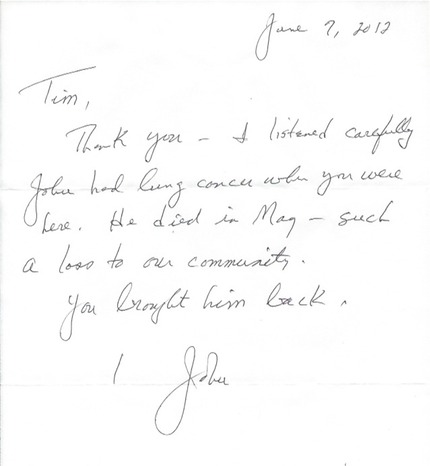 June 7, 2012
Tim,
Thank you – I listened carefully
John had lung cancer when you were
here. He died in May – such
a loss to our community.
You brought him back.
John